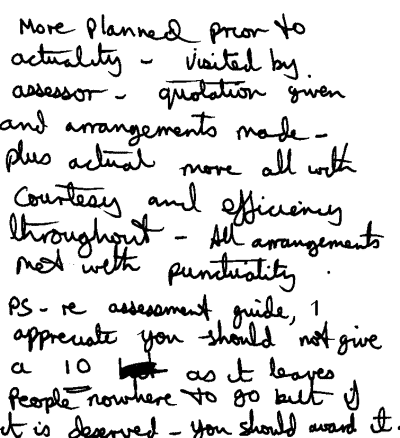 More planned prior to
actuality - visited by
assessor - quotation given
and arrangements made -
plus actual move all with
courtesy and efficiency
throughout - All arrangements
met with punctuality.
PS - re assessment guide, I
appreciate you should not give
a 10 as it leaves
people nowhere to go but if
it is deserved - you should award it.